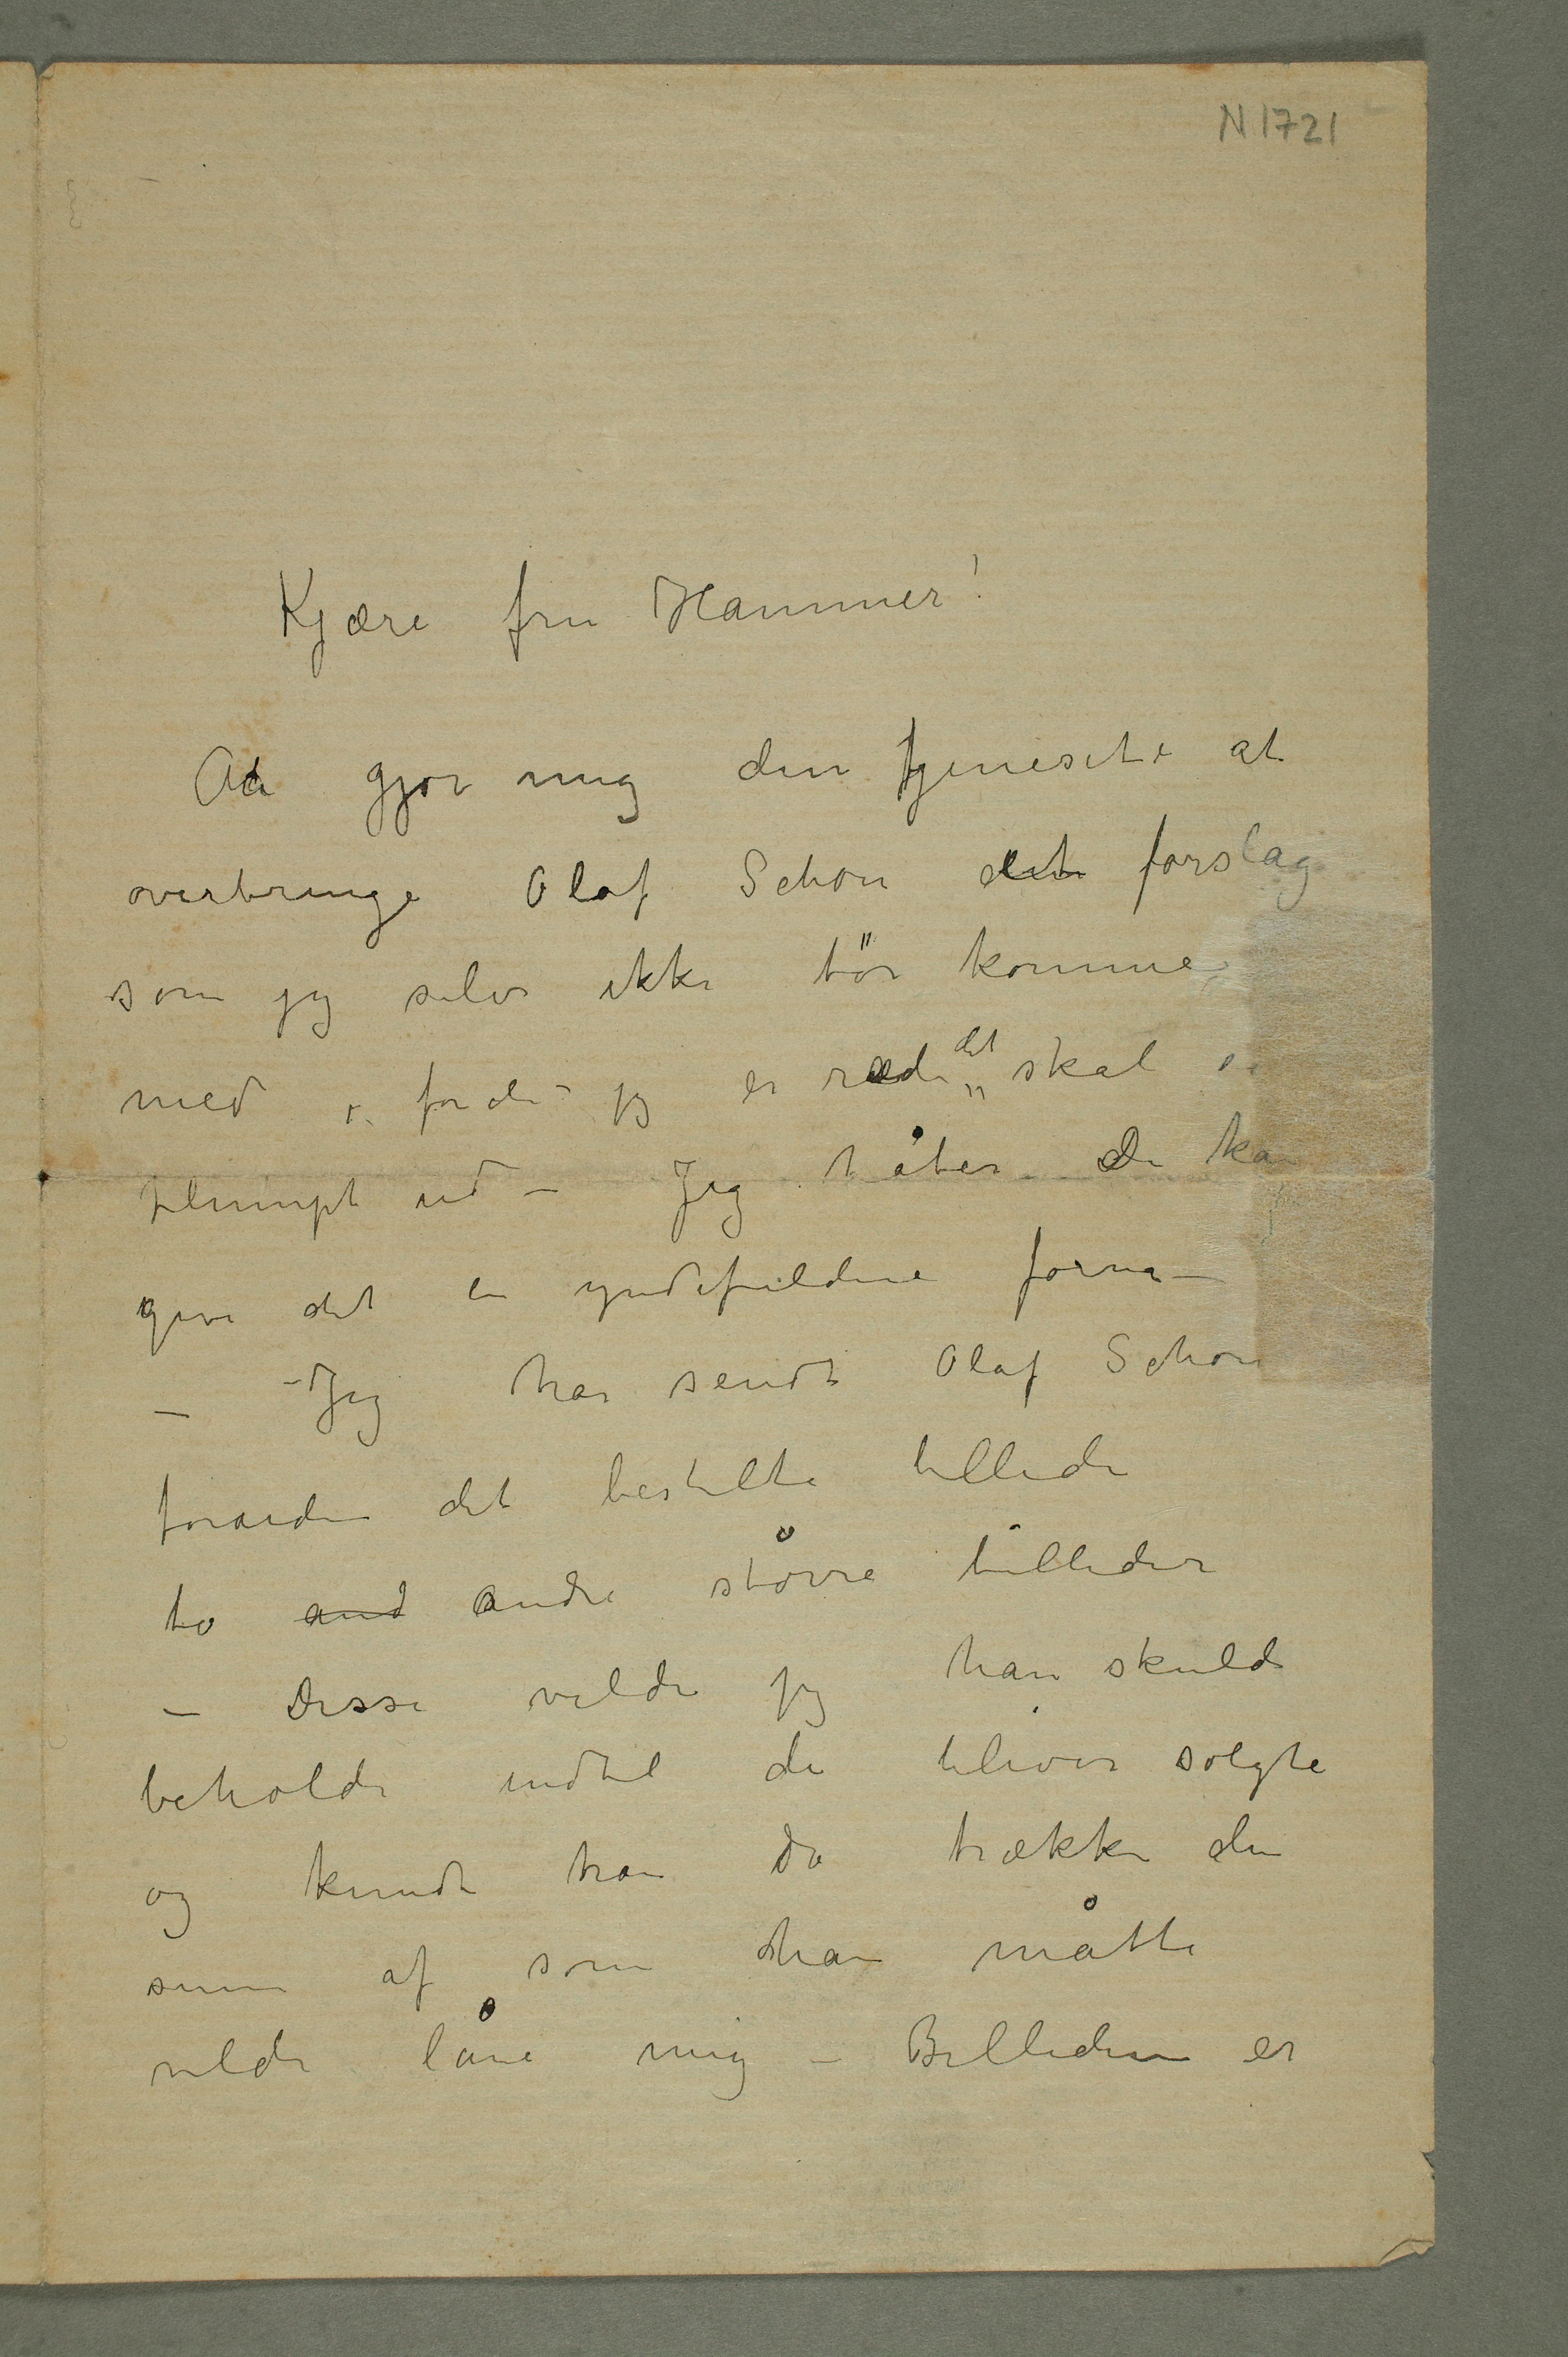 N 1721
Kjære fru Hammer!
Aa gjør mig den tjeneste at
overbringe Olaf Schou det forslag
som jeg selv ikke tör komme
med, fordi jeg er ræd det skal se
plumpt ud – Jeg håber De kan
give det en yndefuldere form –
– Jeg har sendt Olaf Schou
foruden det bestilte billede
to and andre större billeder
– Disse vilde jeg han skulde
beholde indtil de bliver solgte
og kunde han da trække den
sum af som han måtte
vilde låne mig – Billederne er